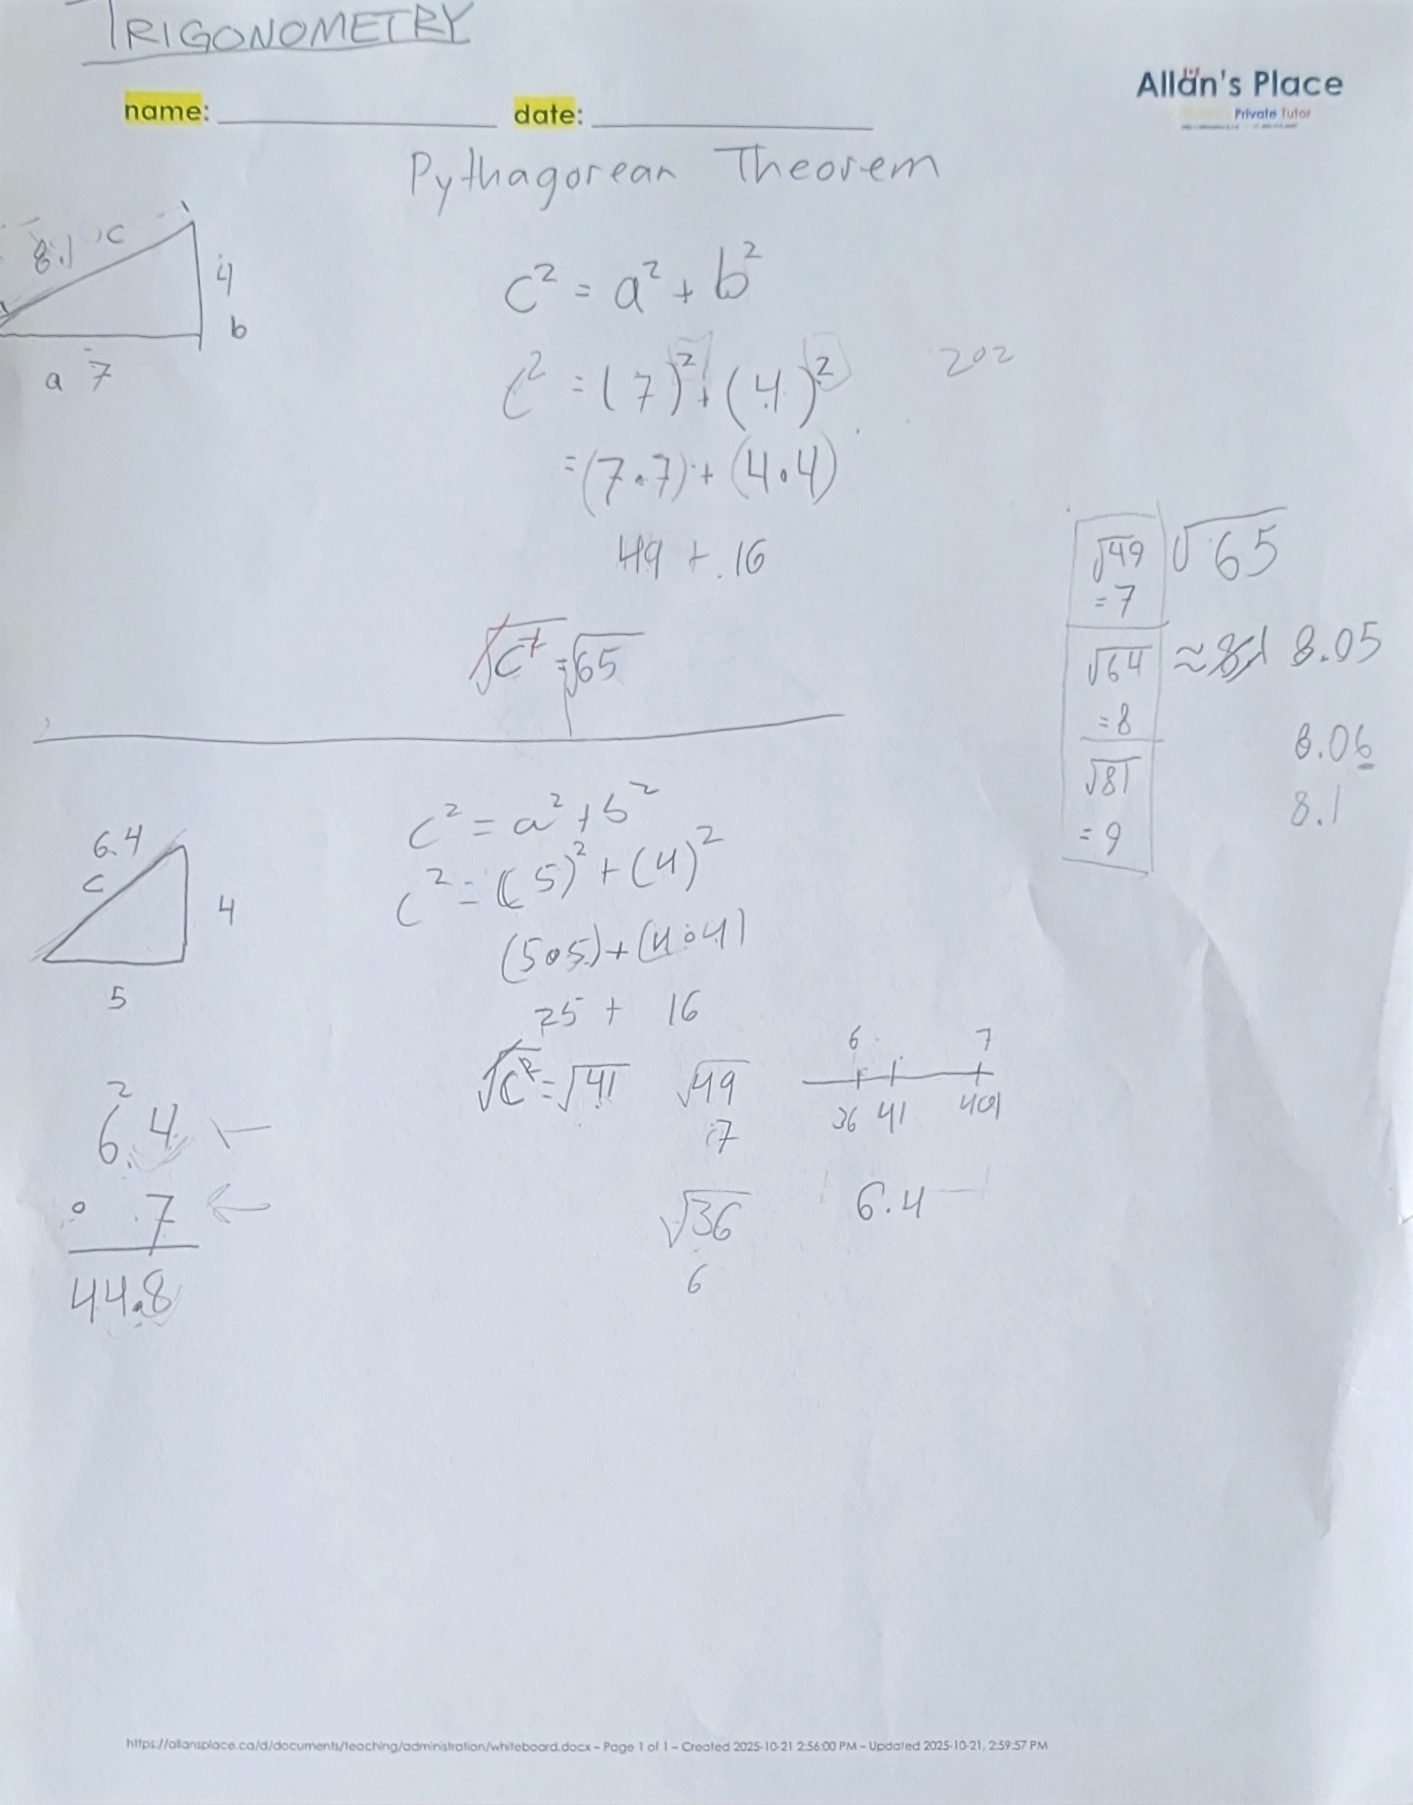 TRIGONOMETRY
name: date:
Allan's Place
Private Tutor
Pythagorean Theorem
8.1 c
4
b
a 7
c² = a² + b²
c² = (7)² + (4)²
202
= (7•7) + (4•4)
49 + 16
√c² = √65
√49
= 7
√64
= 8
√81
= 9
√65
≈ 8.1 8.05
8.06
8.1
6.4
c
4
5
c² = a² + b²
c² = (5)² + (4)²
(5•5) + (4•4)
25 + 16
√c² = √41
√49
7
√36
6
6 7
36 41 49
6.4
2
6.4
• 7
44.8
https://allansplace.ca/d/documents/teaching/administration/whiteboard.docx – Page 1 of 1 – Created 2025-10-21 2:56:00 PM – Updated 2025-10-21, 2:59:57 PM